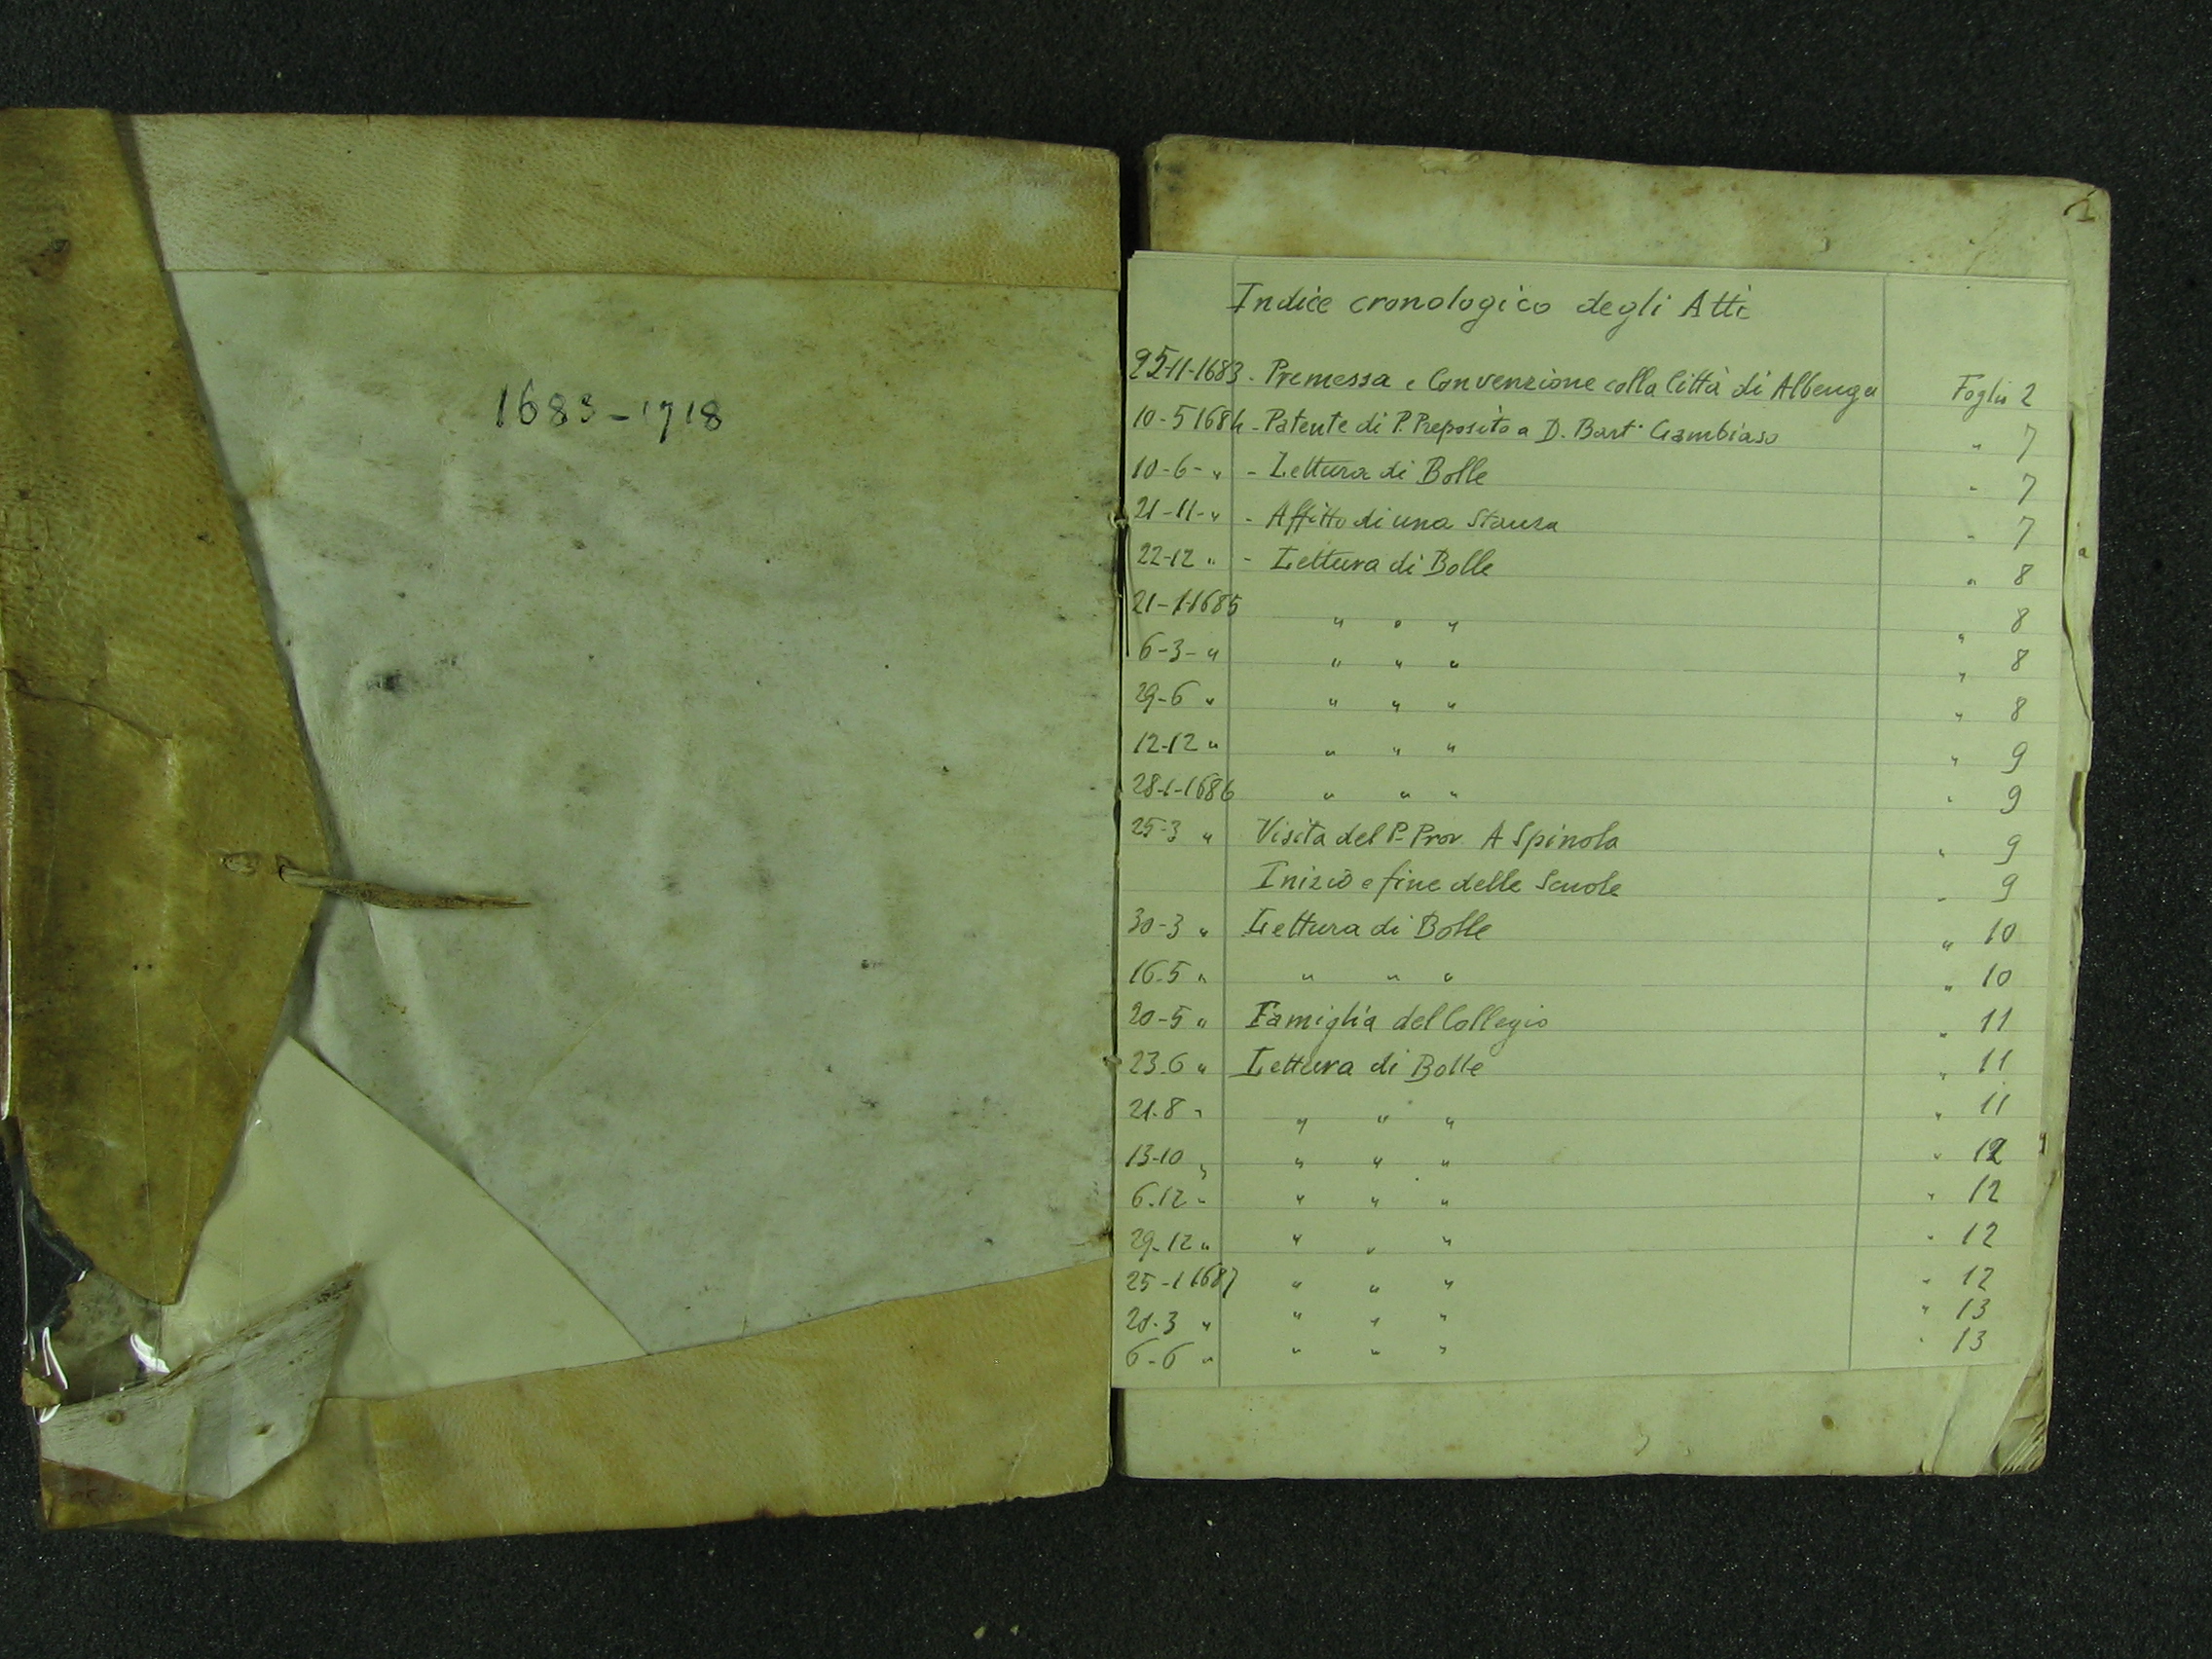 1683-1718
1
Indice cronologico degli Atti
25-11-1683. Premessa e Convenzione colla Città di Albenga Foglio 2
10-5 1684 - Patente di P. Preposito a D. Bart. Gambiaso " 7
10-6- " - Lettura di Bolle " 7
21-11- " - Affitto di una Stanza " 7
22-12 " - Lettura di Bolle " 8
21-1-1685 " " " " 8
6-3- " " " " " 8
29-6 " " " " " 8
12-12 " " " " " 9
28-1-1686 " " " " 9
25-3 " Visita del P. Prov. A Spinola " 9
Inizio e fine delle Scuole " 9
30-3 " Lettura di Bolle " 10
16.5 " " " " " 10
20-5 " Famiglia del Collegio " 11
23.6 " Lettura di Bolle " 11
21.8 " " " " " 11
13-10 " " " " " 12
6.12 " " " " " 12
29.12 " " " " " 12
25-1 1687 " " " " 12
21.3 " " " " " 13
6-6 " " " " " 13